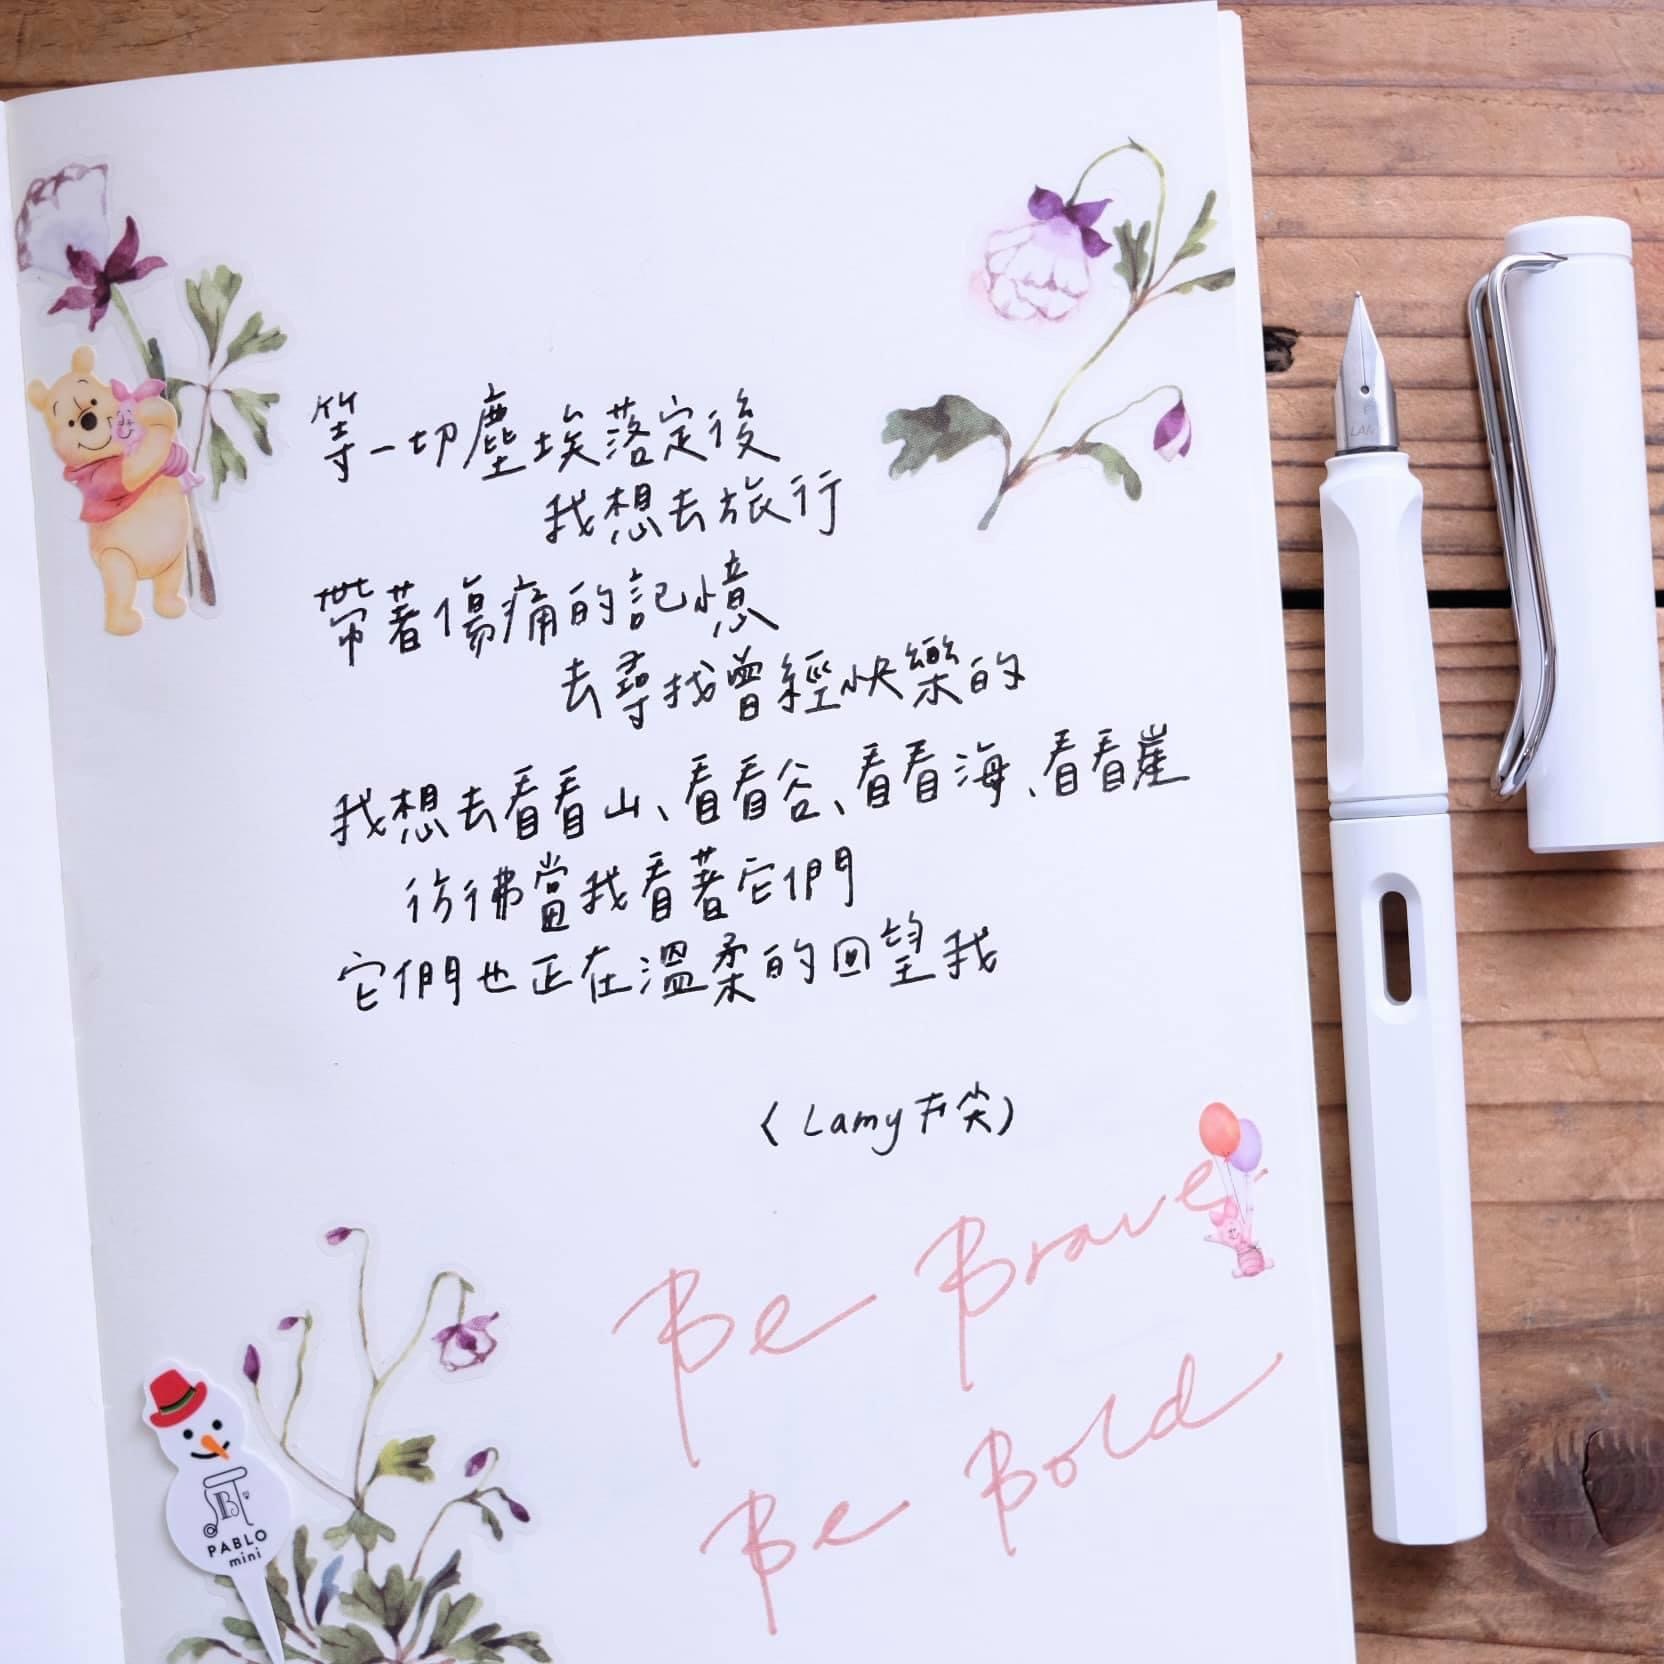 等一切塵埃落定後
我想去旅行
帶著傷痛的記憶
去尋找曾經快樂的
我想去看看山、看看谷、看看海、看看崖
彷彿當我看著它們
它們也正在溫柔的回望我
(Lamy F尖)
Be Brave
Be Bold
PABLO
mini
LAMY